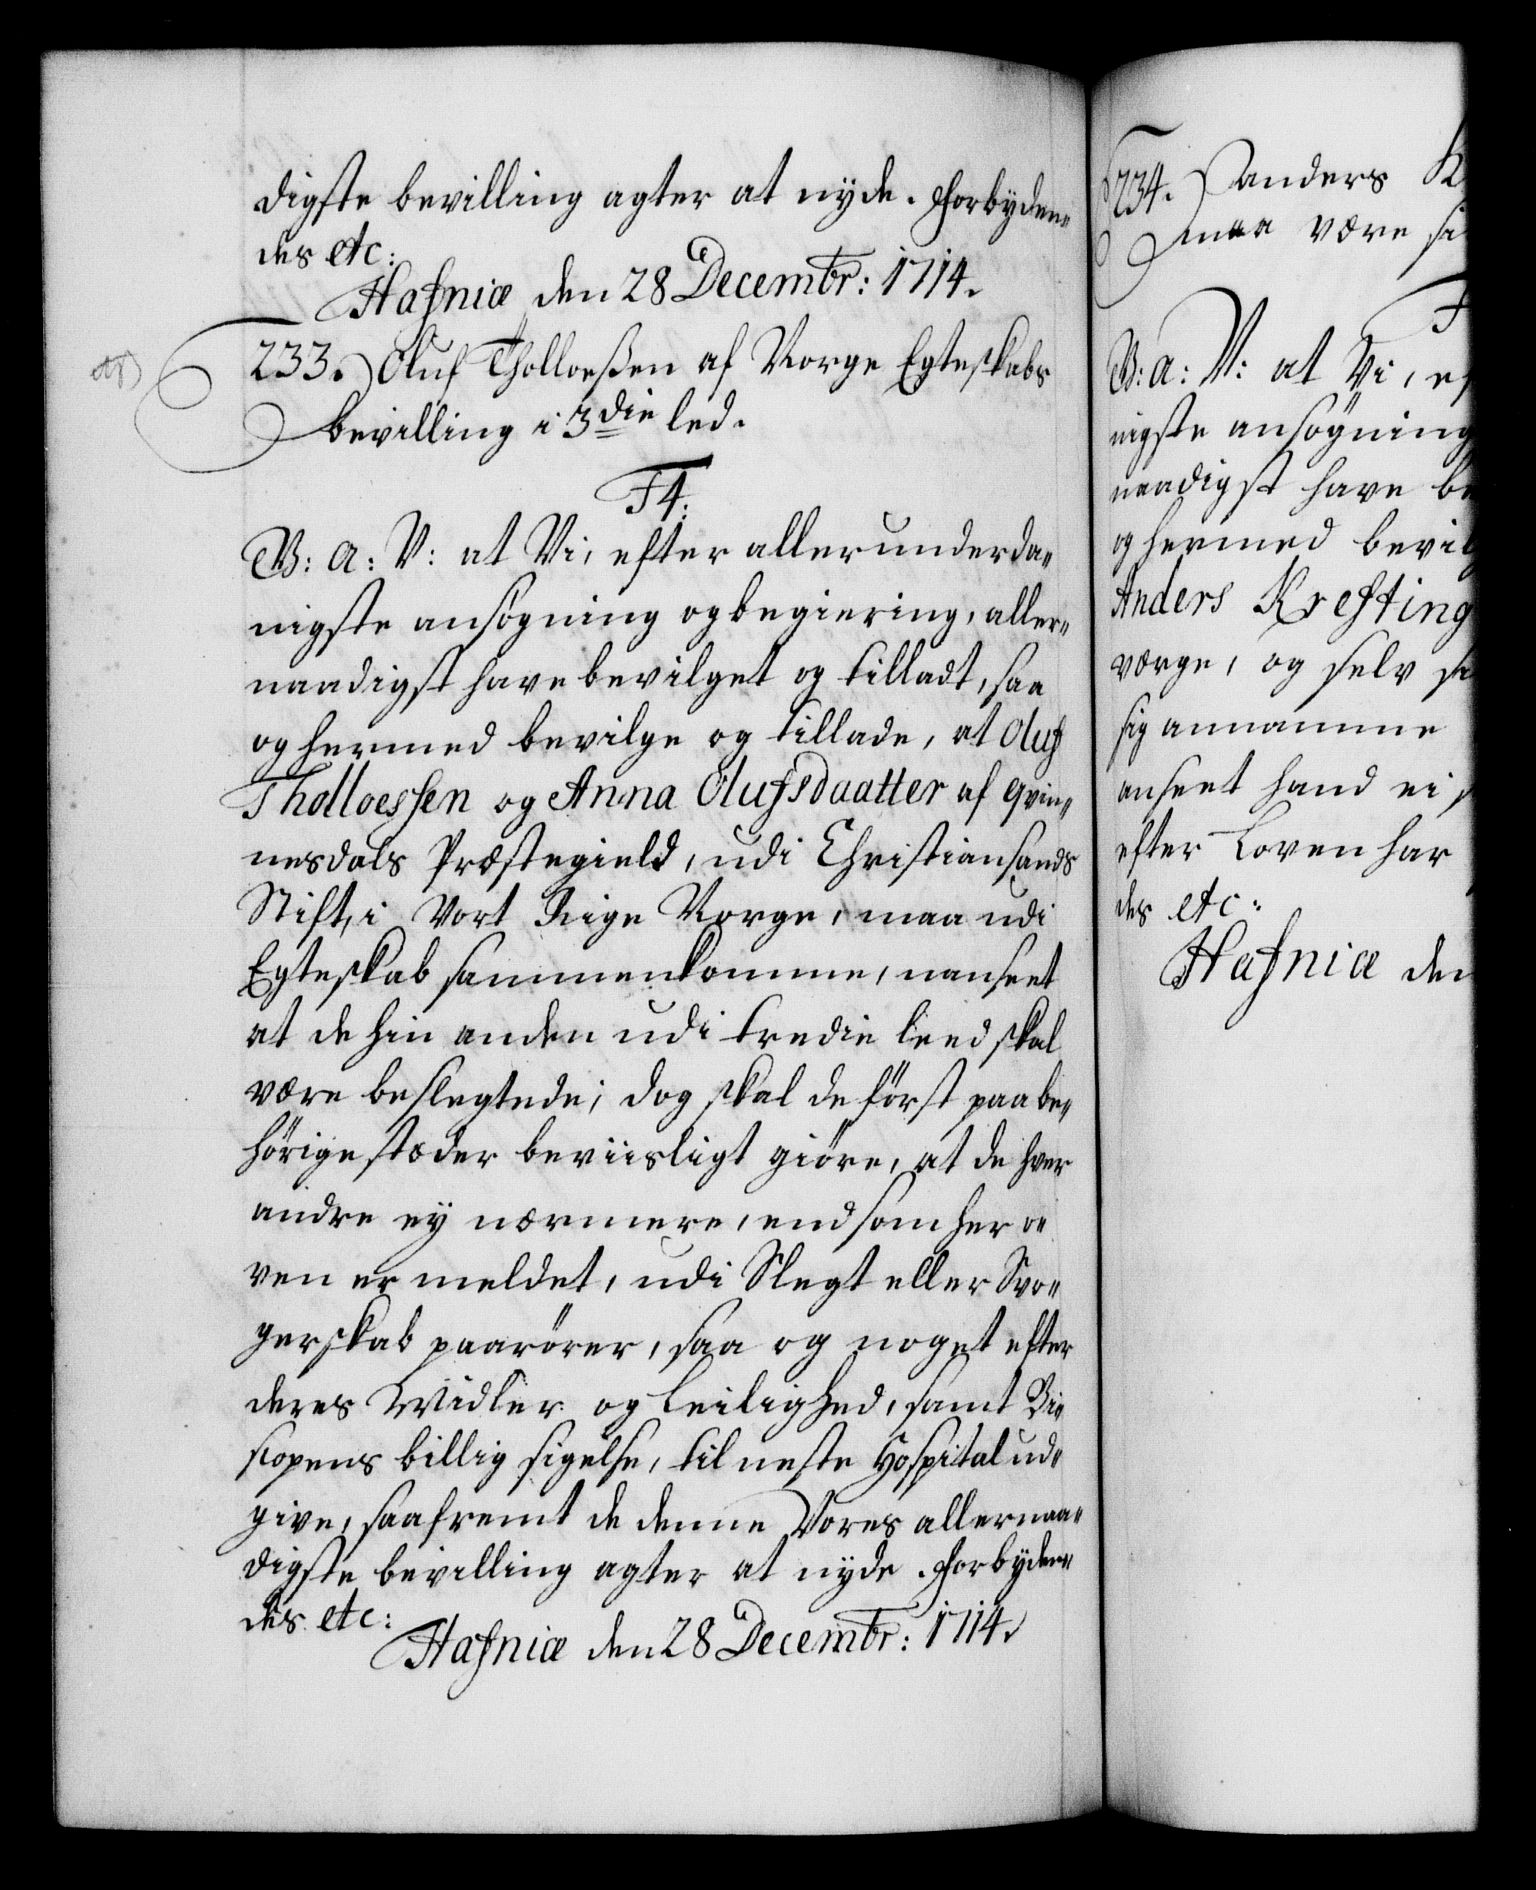 digste bevilling agter at nyde. Forbyden-
des etc:
Hafniæ den 28 Decembr: 1714.
233. Oluf Tholloeßen af Norge Egteskabs
bevilling i 3die led.
F4.
W: A: V: at Vi, efter allerunderda-
nigste ansøgning og begiering, aller-
naadigst have bevilget og tilladt, saa
og hermed bevilge og tillade, at Oluf
Tholloessen og Anna Olufsdaatter af Qvin-
nesdals Præstegield, udi Christiansands
Stift, i Vort Rige Norge, maa udi
Egteskab sammenkomme, uanseet
at de hin anden udi tredie leed skal
være beslegtede; dog skal de först paa be-
hörige stæder beviisligt giöre, at de hver
andre ey nærmere, end som her o-
ven er meldet, udi Slegt eller Svo-
gerskab paarörer, saa og noget efter
deres Midler og leilighed, samt Bi-
scopens billig sigelse, til neste Hospital ud-
give, saafremt de denne Vores allernaa-
digste bevilling agter at nyde. Forbyden-
des etc:
Hafniæ den 28 Decembr: 1714.
234. Anders K
maa være si
F
W: A: V: at Vi, ef
nigste ansögning
naadigst have be
og hermed bevil
Anders Krefting
værge, og selv si
sig annamme
anseet hand ei
efter Loven har
des etc:
Hafniæ den